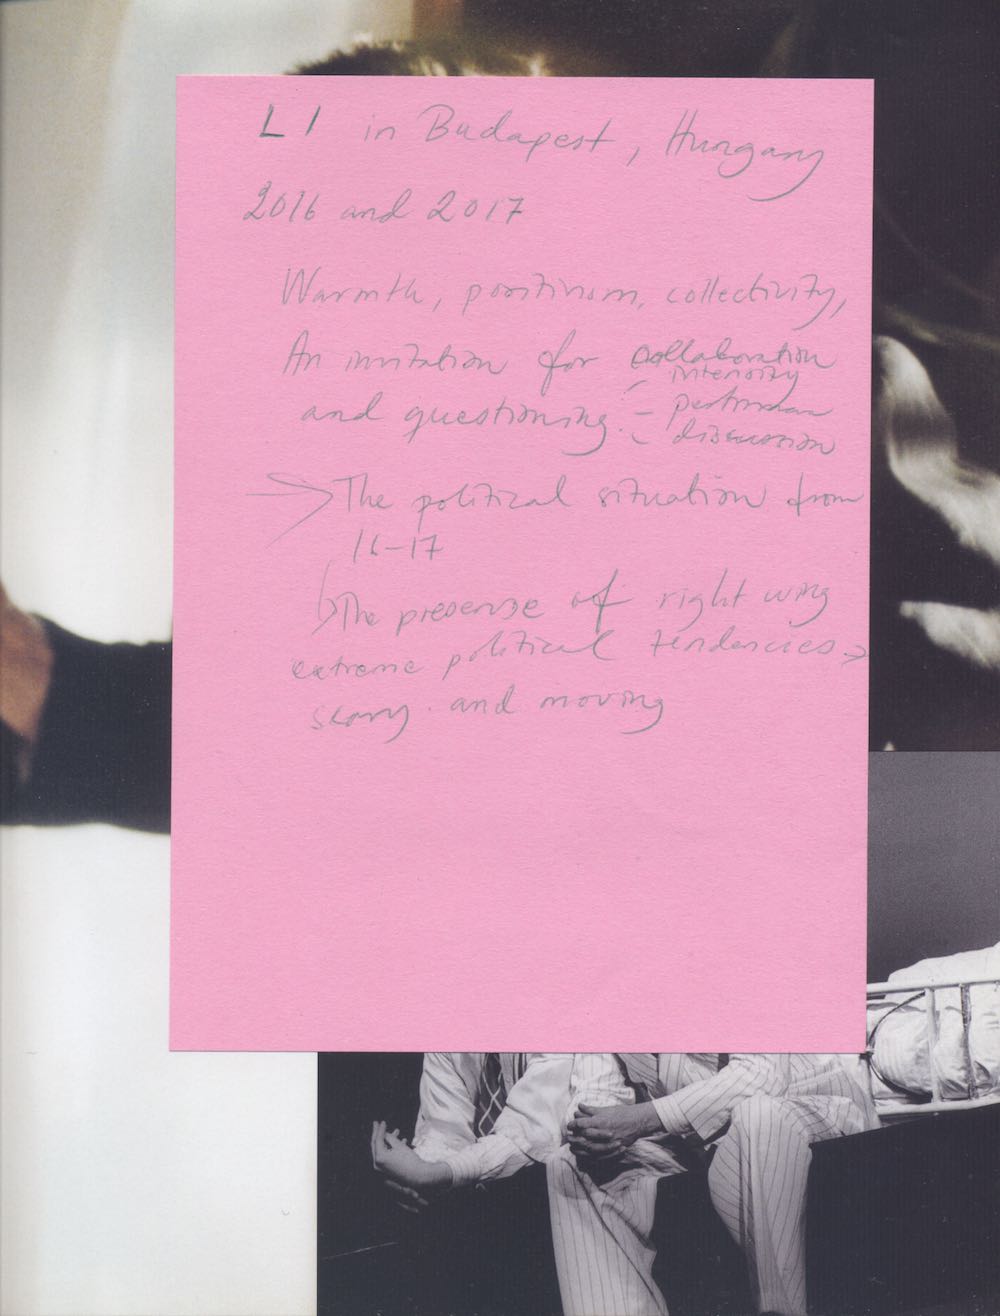 LI in Budapest, Hungary
2016 and 2017
Warmth, positivism, collectivity,
An invitation for collaboration
and questioning.
- intensity
- pessimism
- discussion
→ The political situation from
16-17
↳ The presense of right wing
extreme political tendencies →
scary. and moving